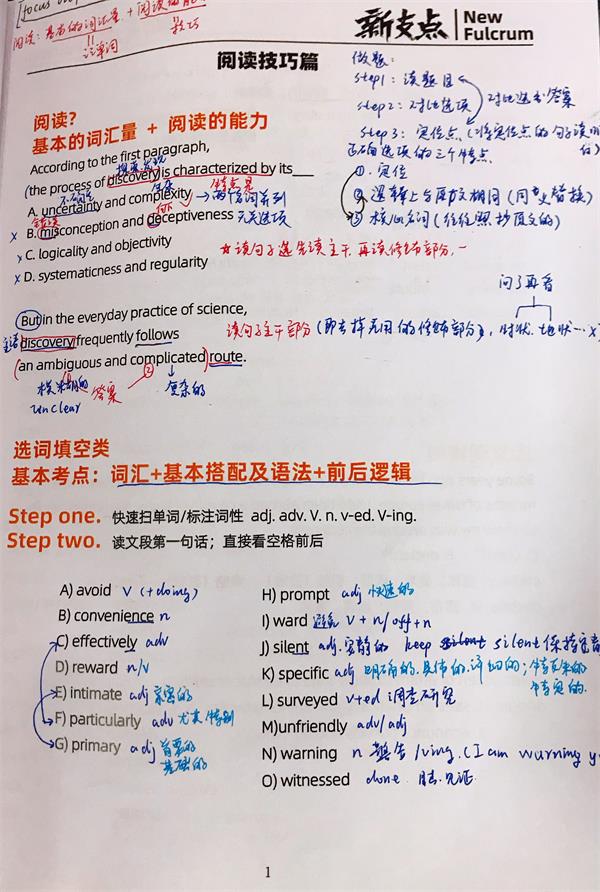 阅读：基本的词汇量 + 阅读的能
记单词
技巧
新支点 New Fulcrum
阅读技巧篇
做题：
step1：读题目
step2：对比选项
对比选出答案
step3：定位点（将定位点的句子读明白）
正确选项的三个特点
①.定位
② 逻辑上与原文相同（同义替换）
③ 核心名词（往往照抄原文的）
阅读？
基本的词汇量 + 阅读的能力
According to the first paragraph,
探索发现
the process of discovery is characterized by its
特点是
A. uncertainty and complexity
两个名词并列
无关选项
错误
x B. misconception and deceptiveness
x C. logicality and objectivity
x D. systematicness and regularity
☆读句子是先读主干，再读修饰部分，
问了再看
But in the everyday practice of science,
主语
discovery frequently follows
读句子主干部分（即去掉无用的修饰部分），时状、地状…x
(an ambiguous and complicated) route.
模糊的
unclear
答案
②
复杂的
选词填空类
基本考点：词汇+基本搭配及语法+前后逻辑
Step one. 快速扫单词/标注词性 adj. adv. V. n. v-ed. V-ing.
Step two. 读文段第一句话；直接看空格前后
A) avoid v (+doing)
B) convenience n
C) effectively adv
D) reward n/v
E) intimate adj 亲密的
F) particularly adv 尤其 特别
G) primary adj 首要的
基础的
H) prompt adj 快速的
I) ward 避免 v + n/off+n
J) silent adj.安静的 keep silent 保持安静
K) specific adj 明确的.具体的.详细的；特有的
特定的.
L) surveyed v+ed 调查研究
M)unfriendly adv/adj
N) warning n 警告/ving.(I am warning y
O) witnessed done. 目睹.见证.
1